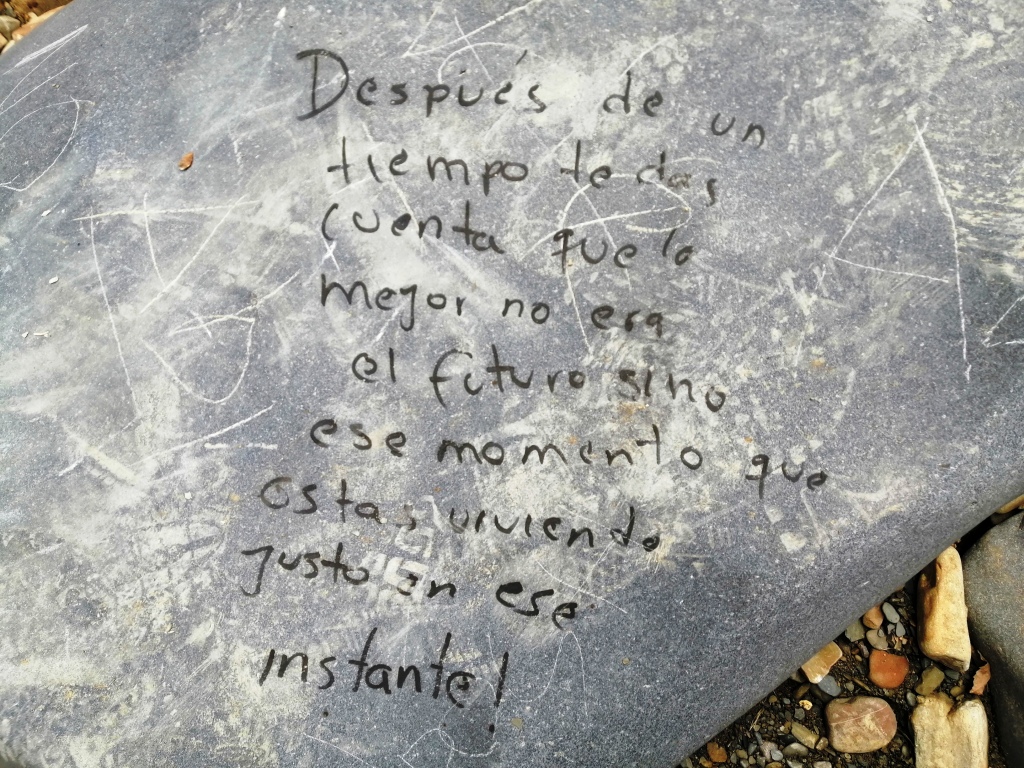 Después de un
tiempo te das
cuenta que lo
mejor no era
el futuro sino
ese momento que
estas viviendo
justo en ese
instante!